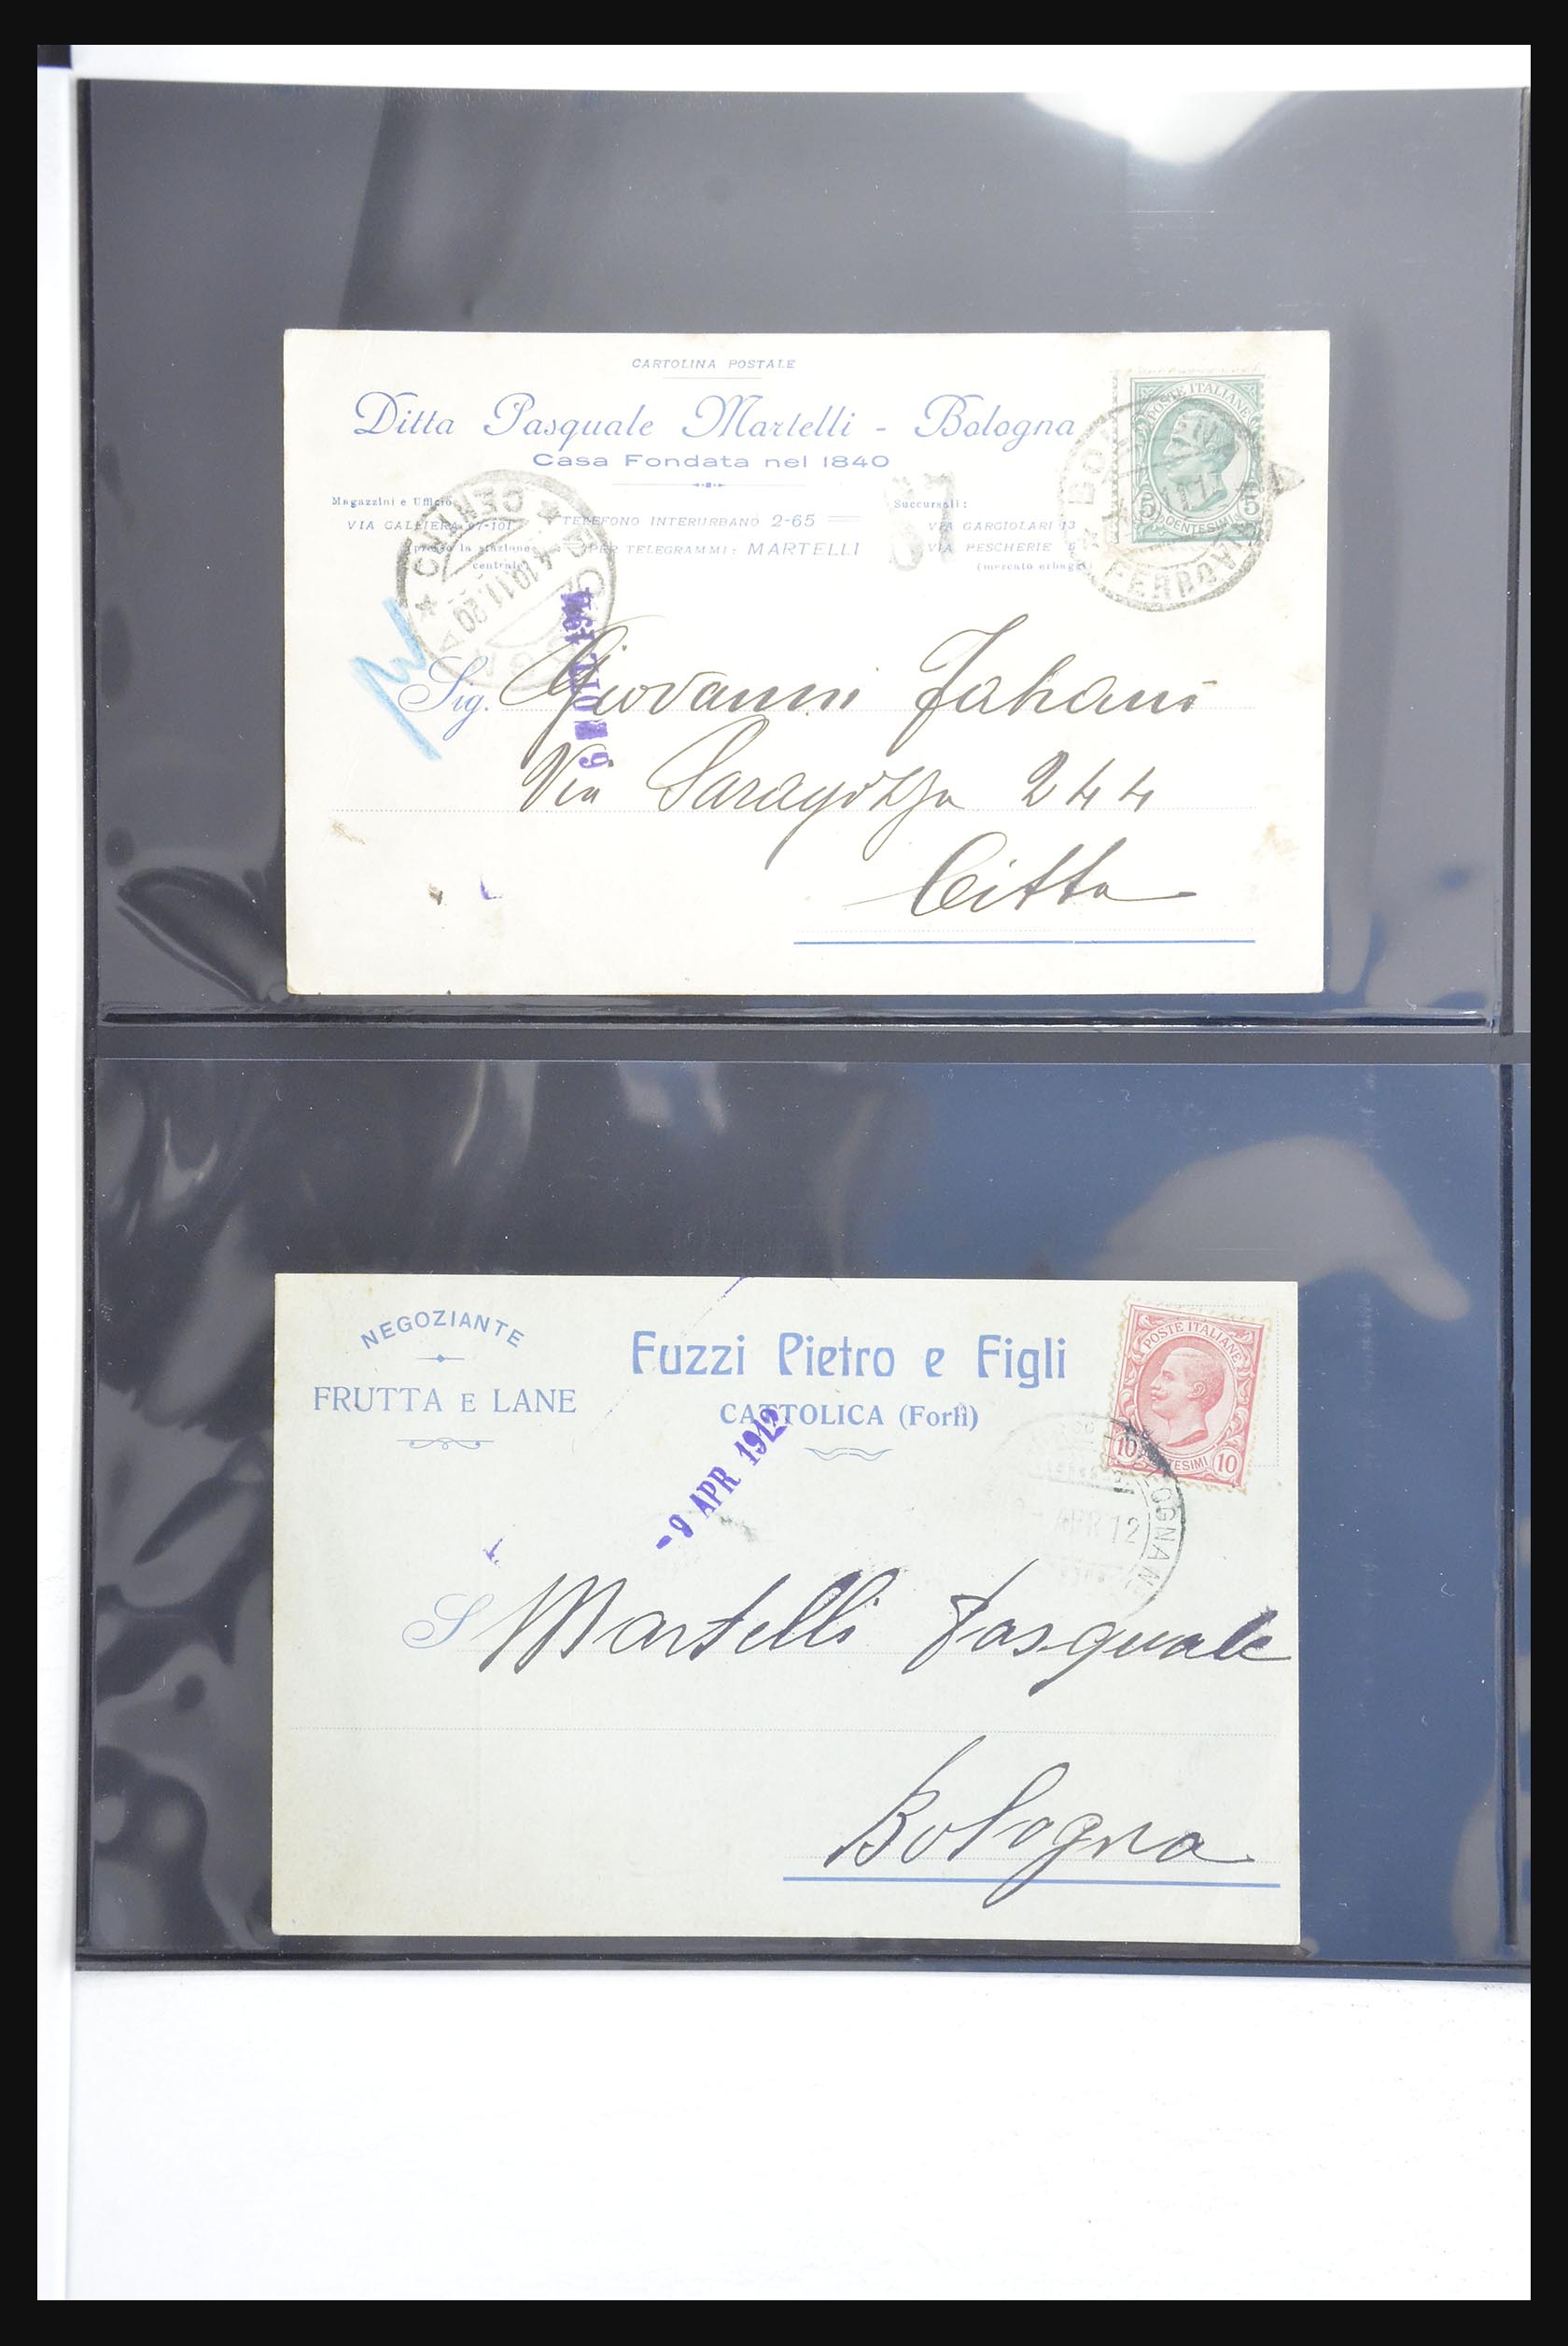 CARTOLINA POSTALE
Ditta Pasquale Martelli - Bologna
Casa Fondata nel 1840
Magazzini e Ufficio
VIA GALLIERA 97-101
(presso la stazione
centrale)
TELEFONO INTERURBANO 2-65
PER TELEGRAMMI: MARTELLI
Succursali:
VIA GARGIOLARI 13
VIA PESCHERIE
(mercato erbaggi
POSTE ITALIANE
5 CENTESIMI 5
FERROVIA
4.10.11.20
67
Sig. Giovanni
Via Saragozza 244
Citta
NEGOZIANTE
FRUTTA E LANE
Fuzzi Pietro e Figli
CATTOLICA (Forlì)
POSTE ITALIANE
10 10
-9 APR 1912
APR 12
S Martelli Pasquale
Bologna